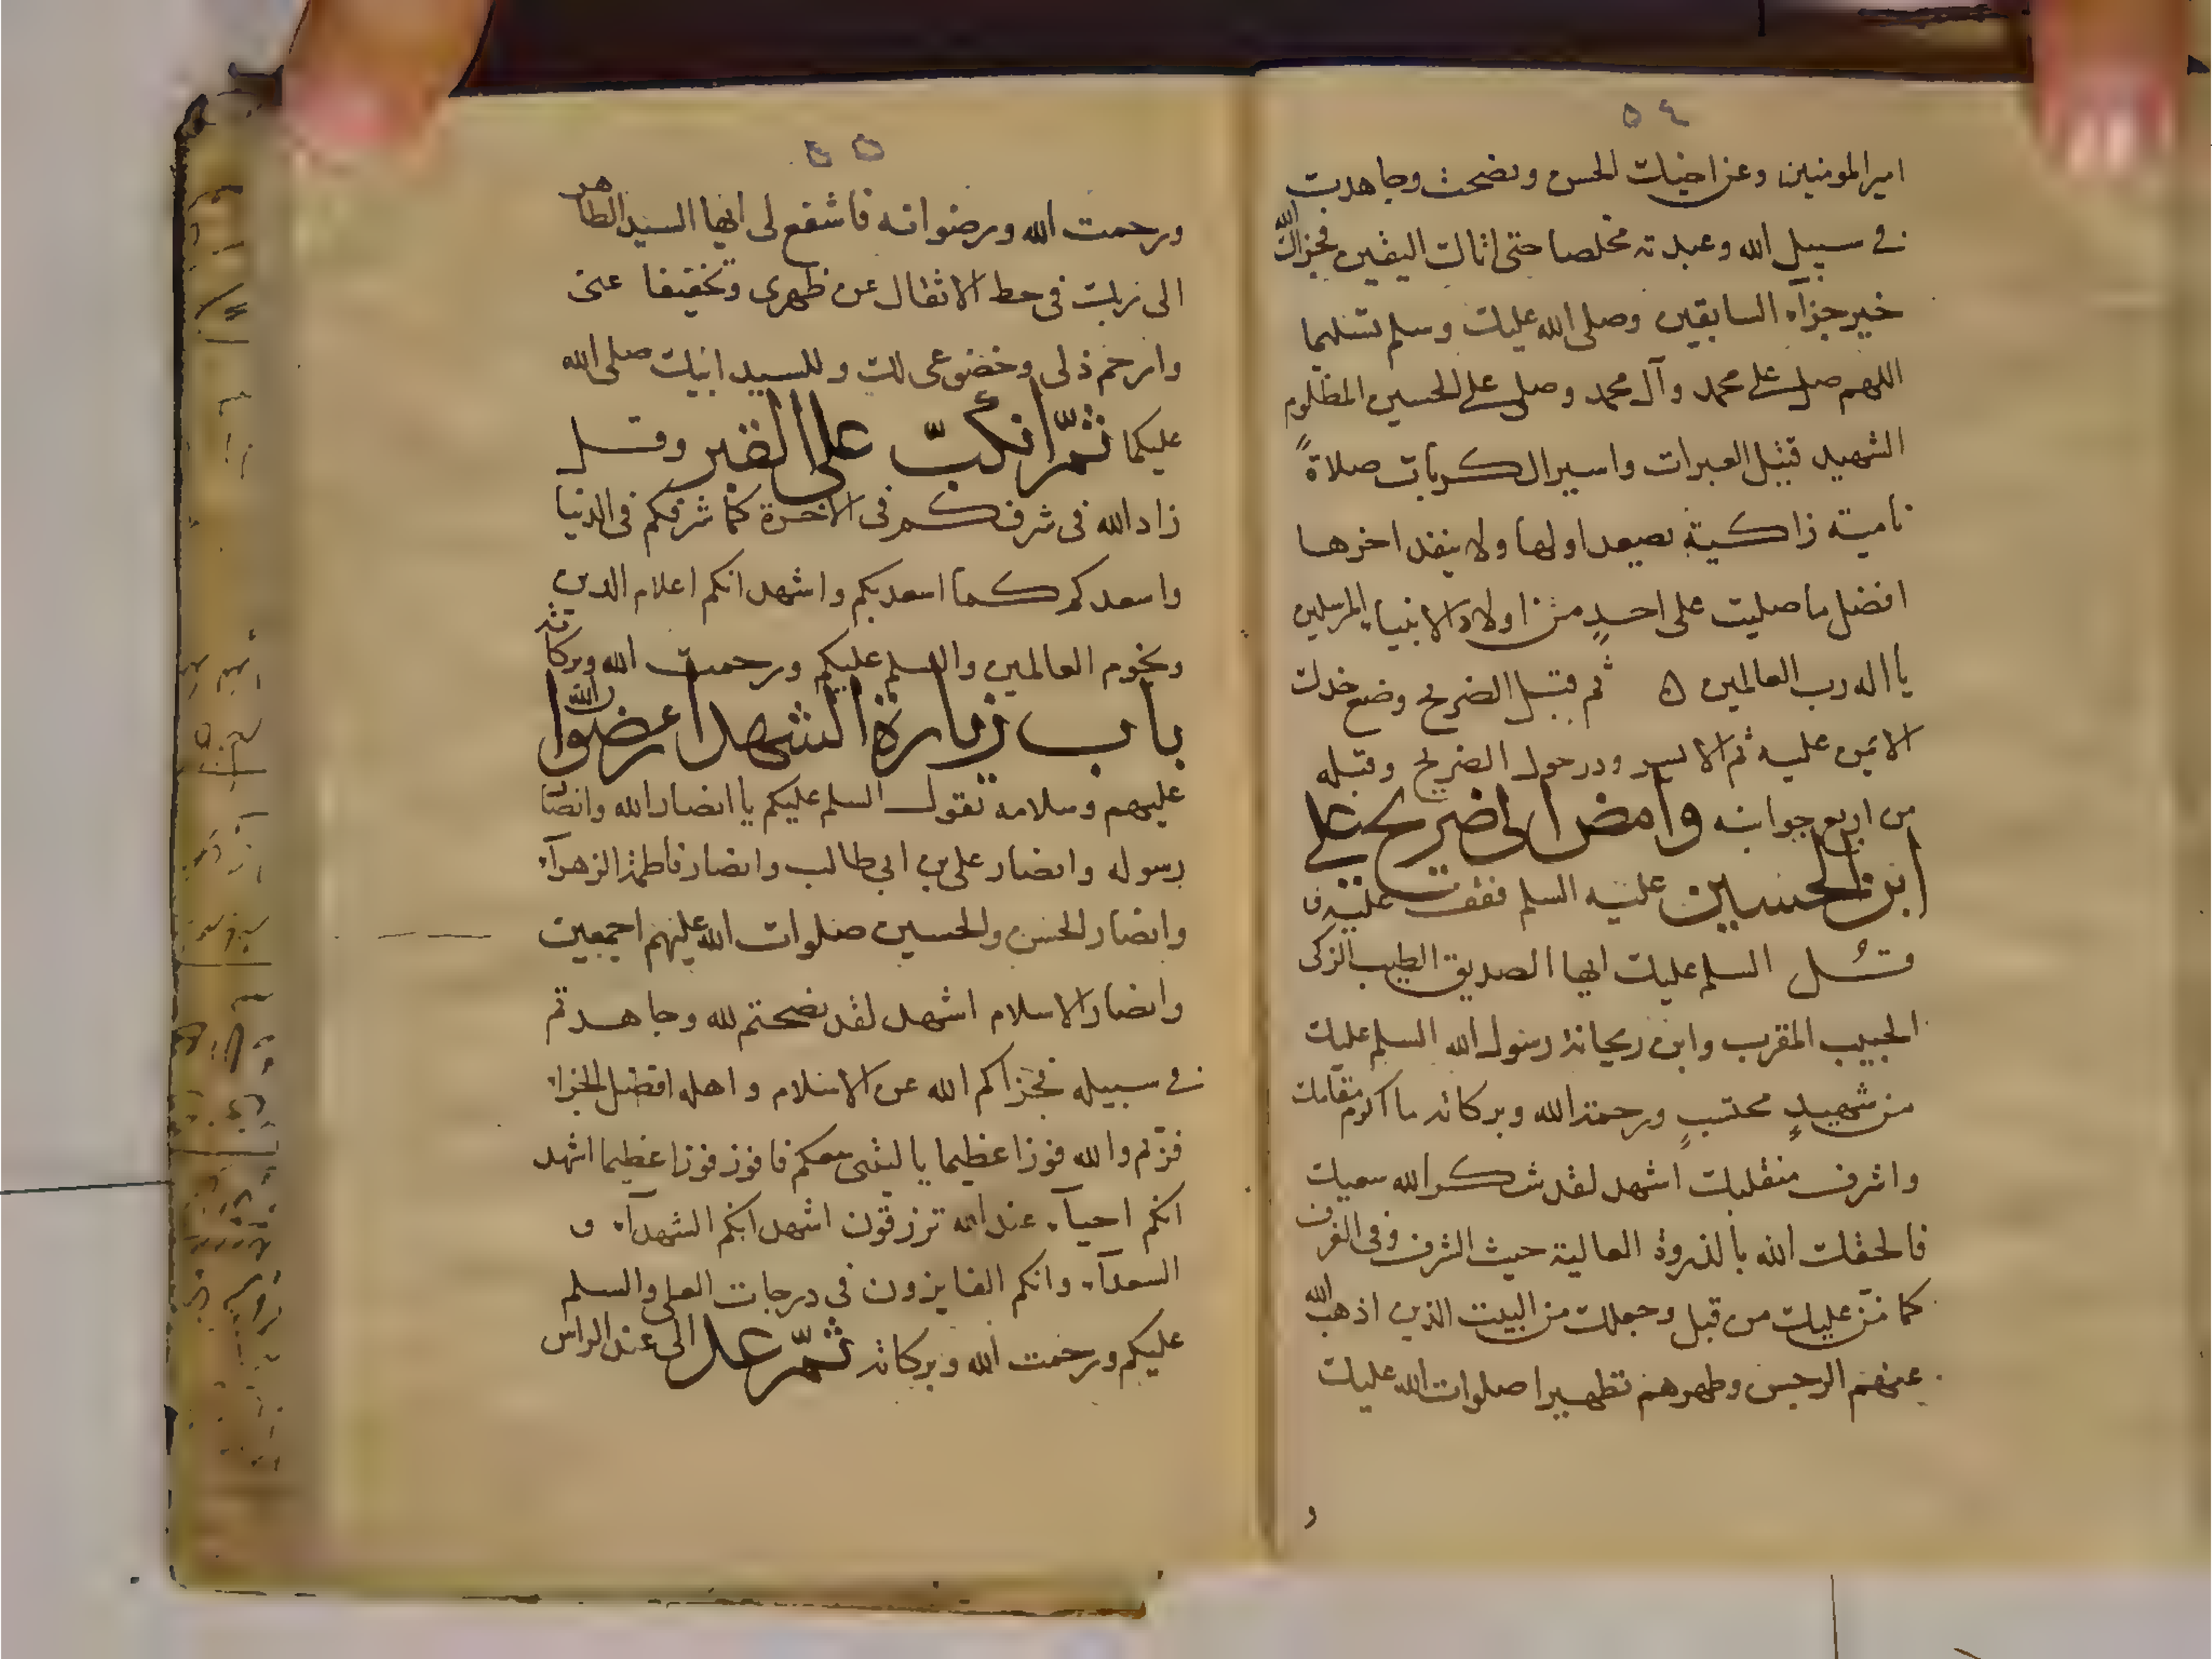 ٥٤
امير المومنين وعن اخيك الحسن ونصحت وجاهدت
في سبيل الله وعبدته مخلصا حتى اتاك اليقين فجزاك الله
خير جزآء السابقين وصلى الله عليك وسلم تسليما
اللهم صل على محمد وآل محمد وصل على الحسين المظلوم
الشهيد قتيل العبرات واسير الكربات صلاةً
نامية زاكية يصعد اولها ولا ينفد اخرها
افضل ما صليت على احدٍ من اولاد الانبياء المرسلين
يا اله رب العالمين ثم قبل الضريح وضع خدك
الايمن عليه ثم الايسر ودر حول الضريح وقبله
من اربع جوانبه وامض الى ضريح علي
ابن الحسين عليه السلم فقف عليه و
قُل السلم عليك ايها الصديق الطيب الزكى
الحبيب المقرب وابن ريحانة رسول الله السلم عليك
من شهيدٍ محتسبٍ ورحمة الله وبركاته ما اكرم مقامك
واشرف منقلبك اشهد لقد شكر الله سعيك
فالحقك الله بالذروة العالية حيث الشرف وفى الغرف
كما مَنّ عليك من قبل وجعلك من البيت الذين اذهب الله
عنهم الرجس وطهرهم تطهيرا صلوات الله عليك
و
٥٥
ورحمت الله ورضوانه فاشفع لى ايها السيد الطاهر
الى ربك فى حط الاثقال عن ظهرى وتخفيفا عنى
وارحم ذلى وخضوعى لك وللسيد ابيك صلى الله
عليكما ثمّ انكبّ على القبر وقل
زاد الله فى شرفكم فى الاخرة كما شرفكم فى الدنيا
واسعدكم كما اسعد بكم واشهد انكم اعلام الدين
ونجوم العالمين والسلم عليكم ورحمت الله وبركاته
باب زيارة الشهداء رضوان الله
عليهم وسلامه تقول السلم عليكم يا انصار الله وانصار
رسوله وانصار على بن ابي طالب وانصار فاطمة الزهرآء
وانصار الحسن والحسين صلوات الله عليهم اجمعين
وانصار الاسلام اشهد لقد نصحتم لله وجاهدتم
في سبيله فجزاكم الله عن الاسلام واهله افضل الجزاء
فزتم والله فوزا عظيما يا ليتنى معكم فافوز فوزا عظيما اشهد
انكم احيآء عند الله ترزقون اشهد انكم الشهدآء و
السعدآء وانكم الفايزون فى درجات العلى والسلم
عليكم ورحمت الله وبركاته ثمّ عد الى عند الراس